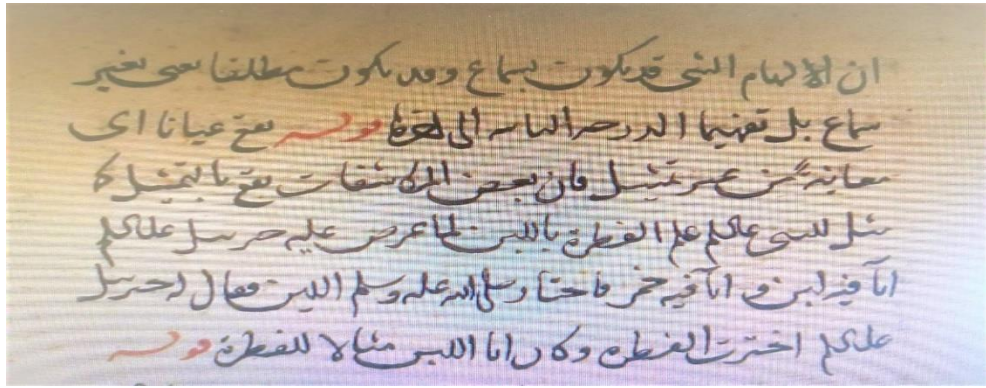 ان الالهام الشى قد يكون بسماع وقد يكون مطلقا بمعنى بغير
سماع بل تفهيما الدرجه الثانيه الى لحقها قوله يقع عيانا اى
معاينة من غير تمثيل فان بعض المكاشفات يقع بالتمثيل كما
مثل للنبى عليه السلم علم الفطرة باللبن لما عرض عليه جبريل عليه السلم
اناً فيه لبن و اناً فيه خمر فاختار صلى الله عليه وسلم اللبن فقال له جبريل
عليه السلم اخترت الفطره وكان انا اللبن مثالا للفطرة قوله